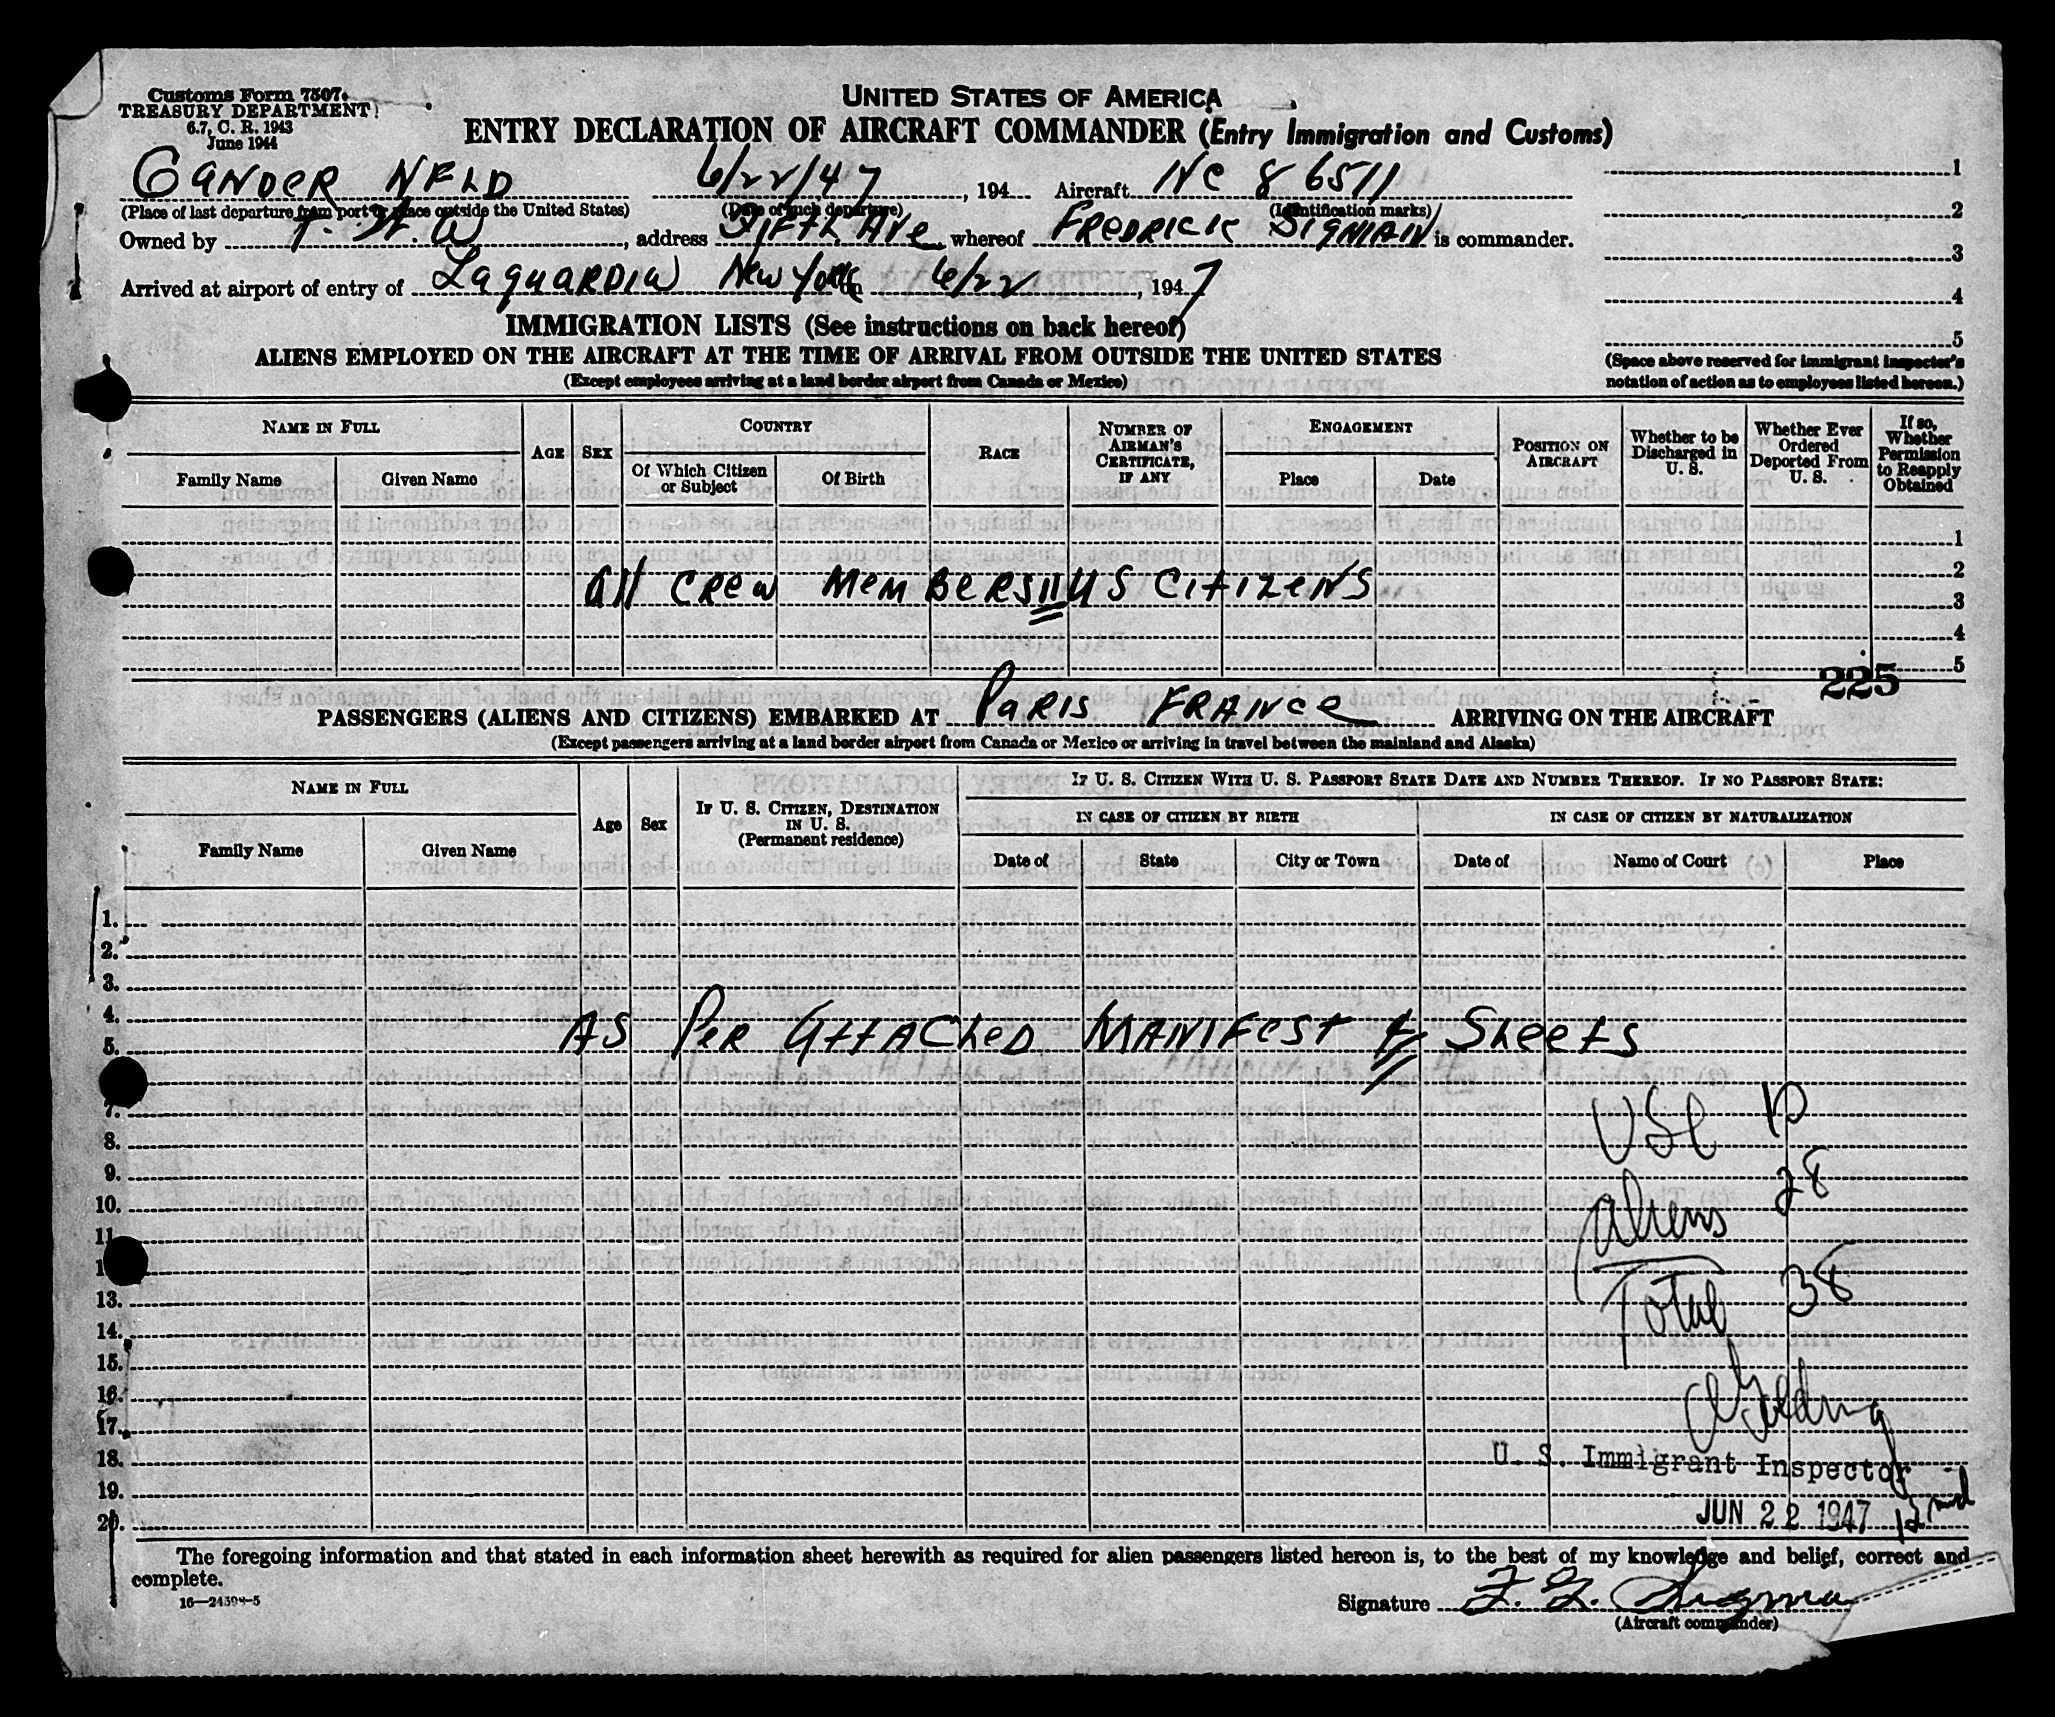 Customs Form 7507
TREASURY DEPARTMENT
6.7, C. R. 1943
June 1944
UNITED STATES OF AMERICA
ENTRY DECLARATION OF AIRCRAFT COMMANDER (Entry Immigration and Customs)
GANDER NFLD 6/22/47, 194 Aircraft NC 86511
(Place of last departure from port or place outside the United States) (Date of such departure) (Identification marks)
Owned by T. W. , address FIFTH AVE whereof FREDRICK SIGMAN is commander.
Arrived at airport of entry of LAGUARDIA NEW YORK on 6/22, 1947
1
2
3
4
5
(Space above reserved for immigrant inspector's
notation of action as to employees listed hereon.)
IMMIGRATION LISTS (See instructions on back hereof)
ALIENS EMPLOYED ON THE AIRCRAFT AT THE TIME OF ARRIVAL FROM OUTSIDE THE UNITED STATES
(Except employees arriving at a land border airport from Canada or Mexico)
NAME IN FULL
Family Name Given Name
AGE SEX
COUNTRY
Of Which Citizen or Subject Of Birth
RACE
NUMBER OF AIRMAN'S CERTIFICATE, IF ANY
ENGAGEMENT
Place Date
POSITION ON AIRCRAFT
Whether to be Discharged in U. S.
Whether Ever Ordered Deported From U. S.
If so, Whether Permission to Reapply Obtained
1
2
All CREW MEMBERS 11 US CITIZENS 3
4
5
225
PASSENGERS (ALIENS AND CITIZENS) EMBARKED AT PARIS FRANCE ARRIVING ON THE AIRCRAFT
(Except passengers arriving at a land border airport from Canada or Mexico or arriving in travel between the mainland and Alaska)
NAME IN FULL
Family Name Given Name
Age Sex
IF U. S. CITIZEN, DESTINATION IN U. S.
(Permanent residence)
IF U. S. CITIZEN WITH U. S. PASSPORT STATE DATE AND NUMBER THEREOF. IF NO PASSPORT STATE:
IN CASE OF CITIZEN BY BIRTH IN CASE OF CITIZEN BY NATURALIZATION
Date of State City or Town Date of Name of Court Place
1.
2.
3.
4.
5. AS PER ATTACHED MANIFEST Sheets
7. USC 10
8.
9.
10. Aliens 28
11
1
13. Total 38
14.
15.
16.
17.
18. U. S. Immigrant Inspector
19.
20. JUN 22 1947 12 md
The foregoing information and that stated in each information sheet herewith as required for alien passengers listed hereon is, to the best of my knowledge and belief, correct and
complete.
16—24598-5
Signature F. G. Sigman
(Aircraft commander)